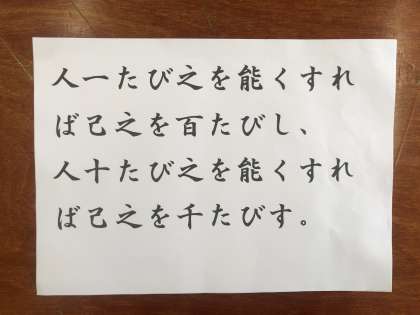 人一たび之を能くすれ
ば己之を百たびし、
人十たび之を能くすれ
ば己之を千たびす。